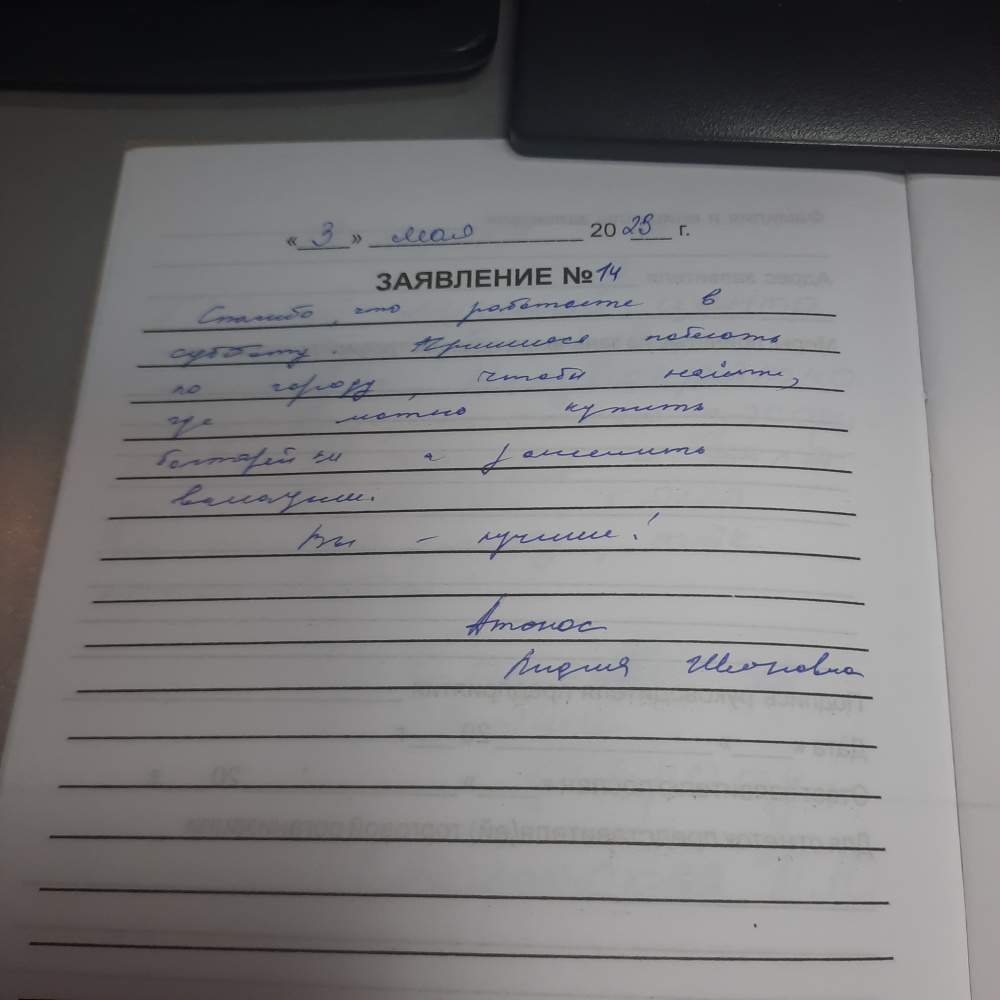 «3» мая 2023 г.
ЗАЯВЛЕНИЕ №14
Спасибо, что работаете в
субботу. Пришлось побегать
по городу, чтобы найти,
где можно купить
батарейки и
Вы – лучшие!
Лидия